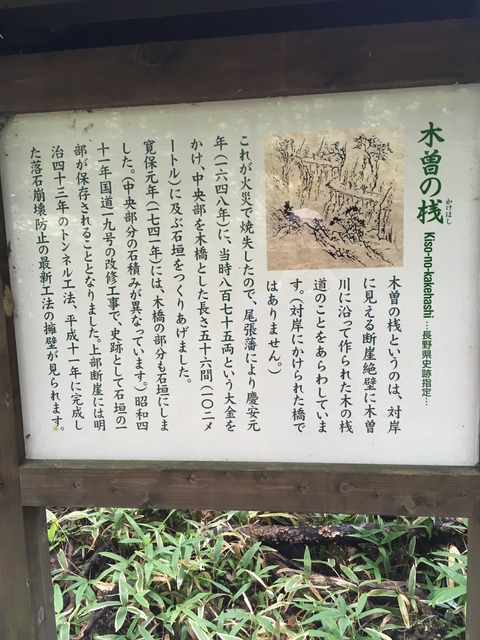 木曽の棧
かけはし
Kiso-no-kakehashi
…長野県史跡指定…
木曽の棧というのは、対岸
に見える断崖絶壁に木曽
川に沿って作られた木の棧
道のことをあらわしていま
す。(対岸にかけられた橋で
はありません。)
これが火災で焼失したので、尾張藩により慶安元
年(一六四八年)に、当時八百七十五両という大金を
かけ、中央部を木橋とした長さ五十六間(一〇二メ
ートル)に及ぶ石垣をつくりあげました。
寛保元年(一七四一年)には、木橋の部分も石垣にしま
した。(中央部分の石積みが異なっています。)昭和四
十一年国道一九号の改修工事で、史跡として石垣の一
部が保存されることとなりました。上部断崖には明
治四十三年のトンネル工法、平成十一年に完成し
た落石崩壊防止の最新工法の擁壁が見られます。